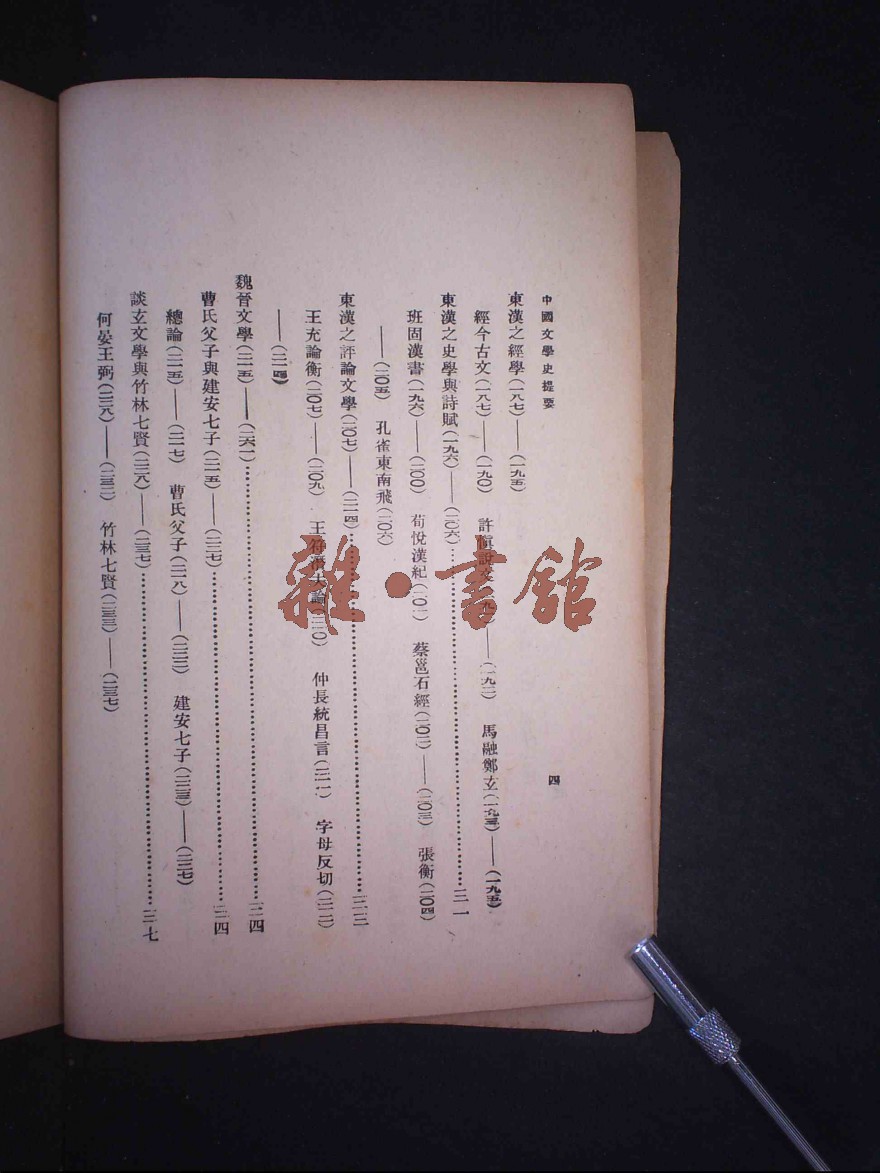 中國文學史提要
四
東漢之經學(一八七)——(一九五)
經今古文(一八七)——(一九〇) 許愼說文 ——(一九二) 馬融鄭玄(一九三)——(一九五)
東漢之史學與詩賦(一九六)——(二〇六)…………三一
班固漢書(一九六)——(二〇〇) 荀悅漢紀(二〇一) 蔡邕石經(二〇二)——(二〇三) 張衡(二〇四)
——(二〇五) 孔雀東南飛(二〇六)
東漢之評論文學(二〇七)——(二一四)…………三三
王充論衡(二〇七)——(二〇九) 王符潛夫論(二一〇) 仲長統昌言(二一一) 字母反切(二一二)
——(二一四)
魏晉文學(二一五)——(二六一)…………三四
曹氏父子與建安七子(二一五)——(二二七)…………三四
總論(二一五)——(二一七) 曹氏父子(二一八)——(二二二) 建安七子(二二三)——(二二七)
談玄文學與竹林七賢(二二八)——(二三七)…………三七
何晏王弼(二二八)——(二三二) 竹林七賢(二三三)——(二三七)
雜·書館